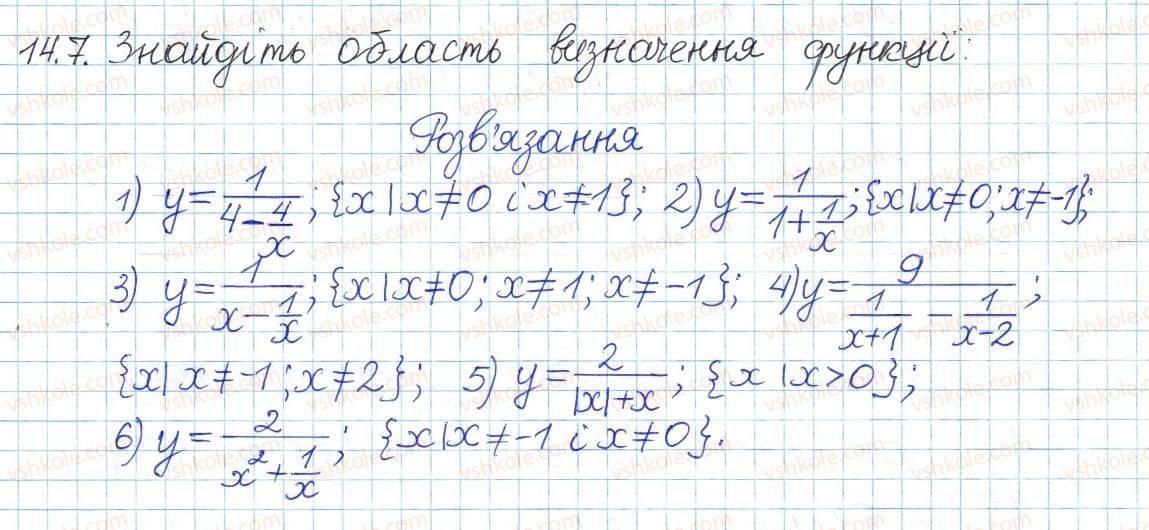 14.7. Знайдіть область визначення функції:
Розв'язання
1) y = 1/(4 - 4/x); {x | x ≠ 0 і x ≠ 1}; 2) y = 1/(1 + 1/x); {x | x ≠ 0; x ≠ -1};
3) y = 1/(x - 1/x); {x | x ≠ 0; x ≠ 1; x ≠ -1}; 4) y = 9/(1/(x+1) - 1/(x-2));
{x | x ≠ -1; x ≠ 2}; 5) y = 2/(|x| + x); {x | x > 0};
6) y = 2/(x² + 1/x); {x | x ≠ -1 і x ≠ 0}.